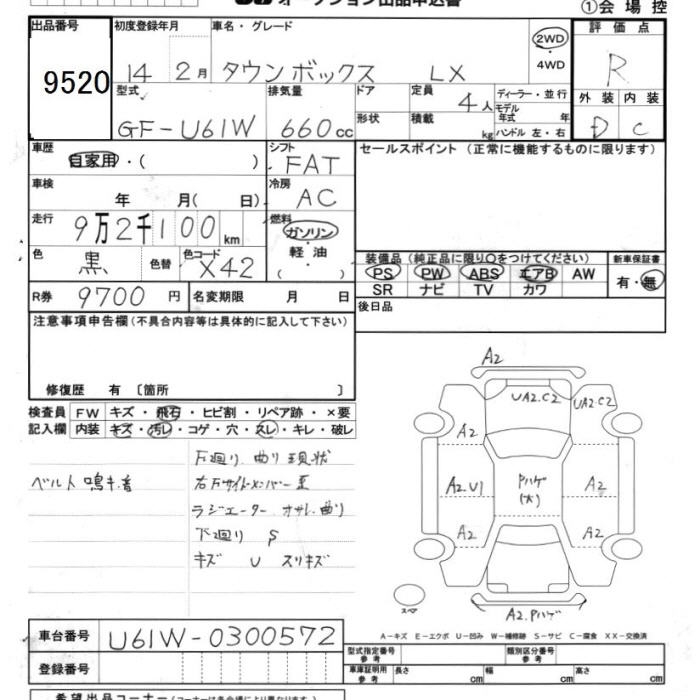 オークション出品申込書
①会場控
出品番号
9520
初度登録年月
14 2月
車名・グレード
タウンボックス LX
2WD
4WD
評価点
R
型式
GF-U61W
排気量
660cc
ドア
形状
定員
4人
積載
kg
ディーラー・並行
モデル年式 年
ハンドル 左・右
外装 内装
D C
車歴
自家用・( )
シフト
FAT
セールスポイント (正常に機能するものに限ります)
車検
年 月( 日)
冷房
AC
走行
9万2千100km
燃料
ガソリン・軽油
( )
色
黒
色替
色コード
X42
装備品 (純正品に限り○をつけてください)
新車保証書
PS PW ABS エアB AW
SR ナビ TV カワ
有・無
R券
9700円
名変期限 月 日
後日品
注意事項申告欄(不具合内容等は具体的に記入して下さい)
修復歴 有 〔箇所 〕
検査員記入欄
FW キズ・飛石・ヒビ割・リペア跡・×要
内装 キズ・汚レ・コゲ・穴・スレ・キレ・破レ
ベルト鳴キ音
下廻り 曲り現状
右Fサイドメンバー歪
ラジエーター オサレ.曲り
下廻り S
キズ U スリキズ
A2
UA2.C2
UA2.C2
A2
A2.U1
Pハゲ(大)
A2
A2
A2
A2.Pハゲ
スペア
A－キズ E－エクボ U－凹み W－補修跡 S－サビ C－腐食 XX－交換済
車台番号
U61W-0300572
登録番号
型式指定番号 参考
類別区分番号 参考
車庫証明用 参考
長さ cm
幅 cm
高さ cm
希望出品コーナー